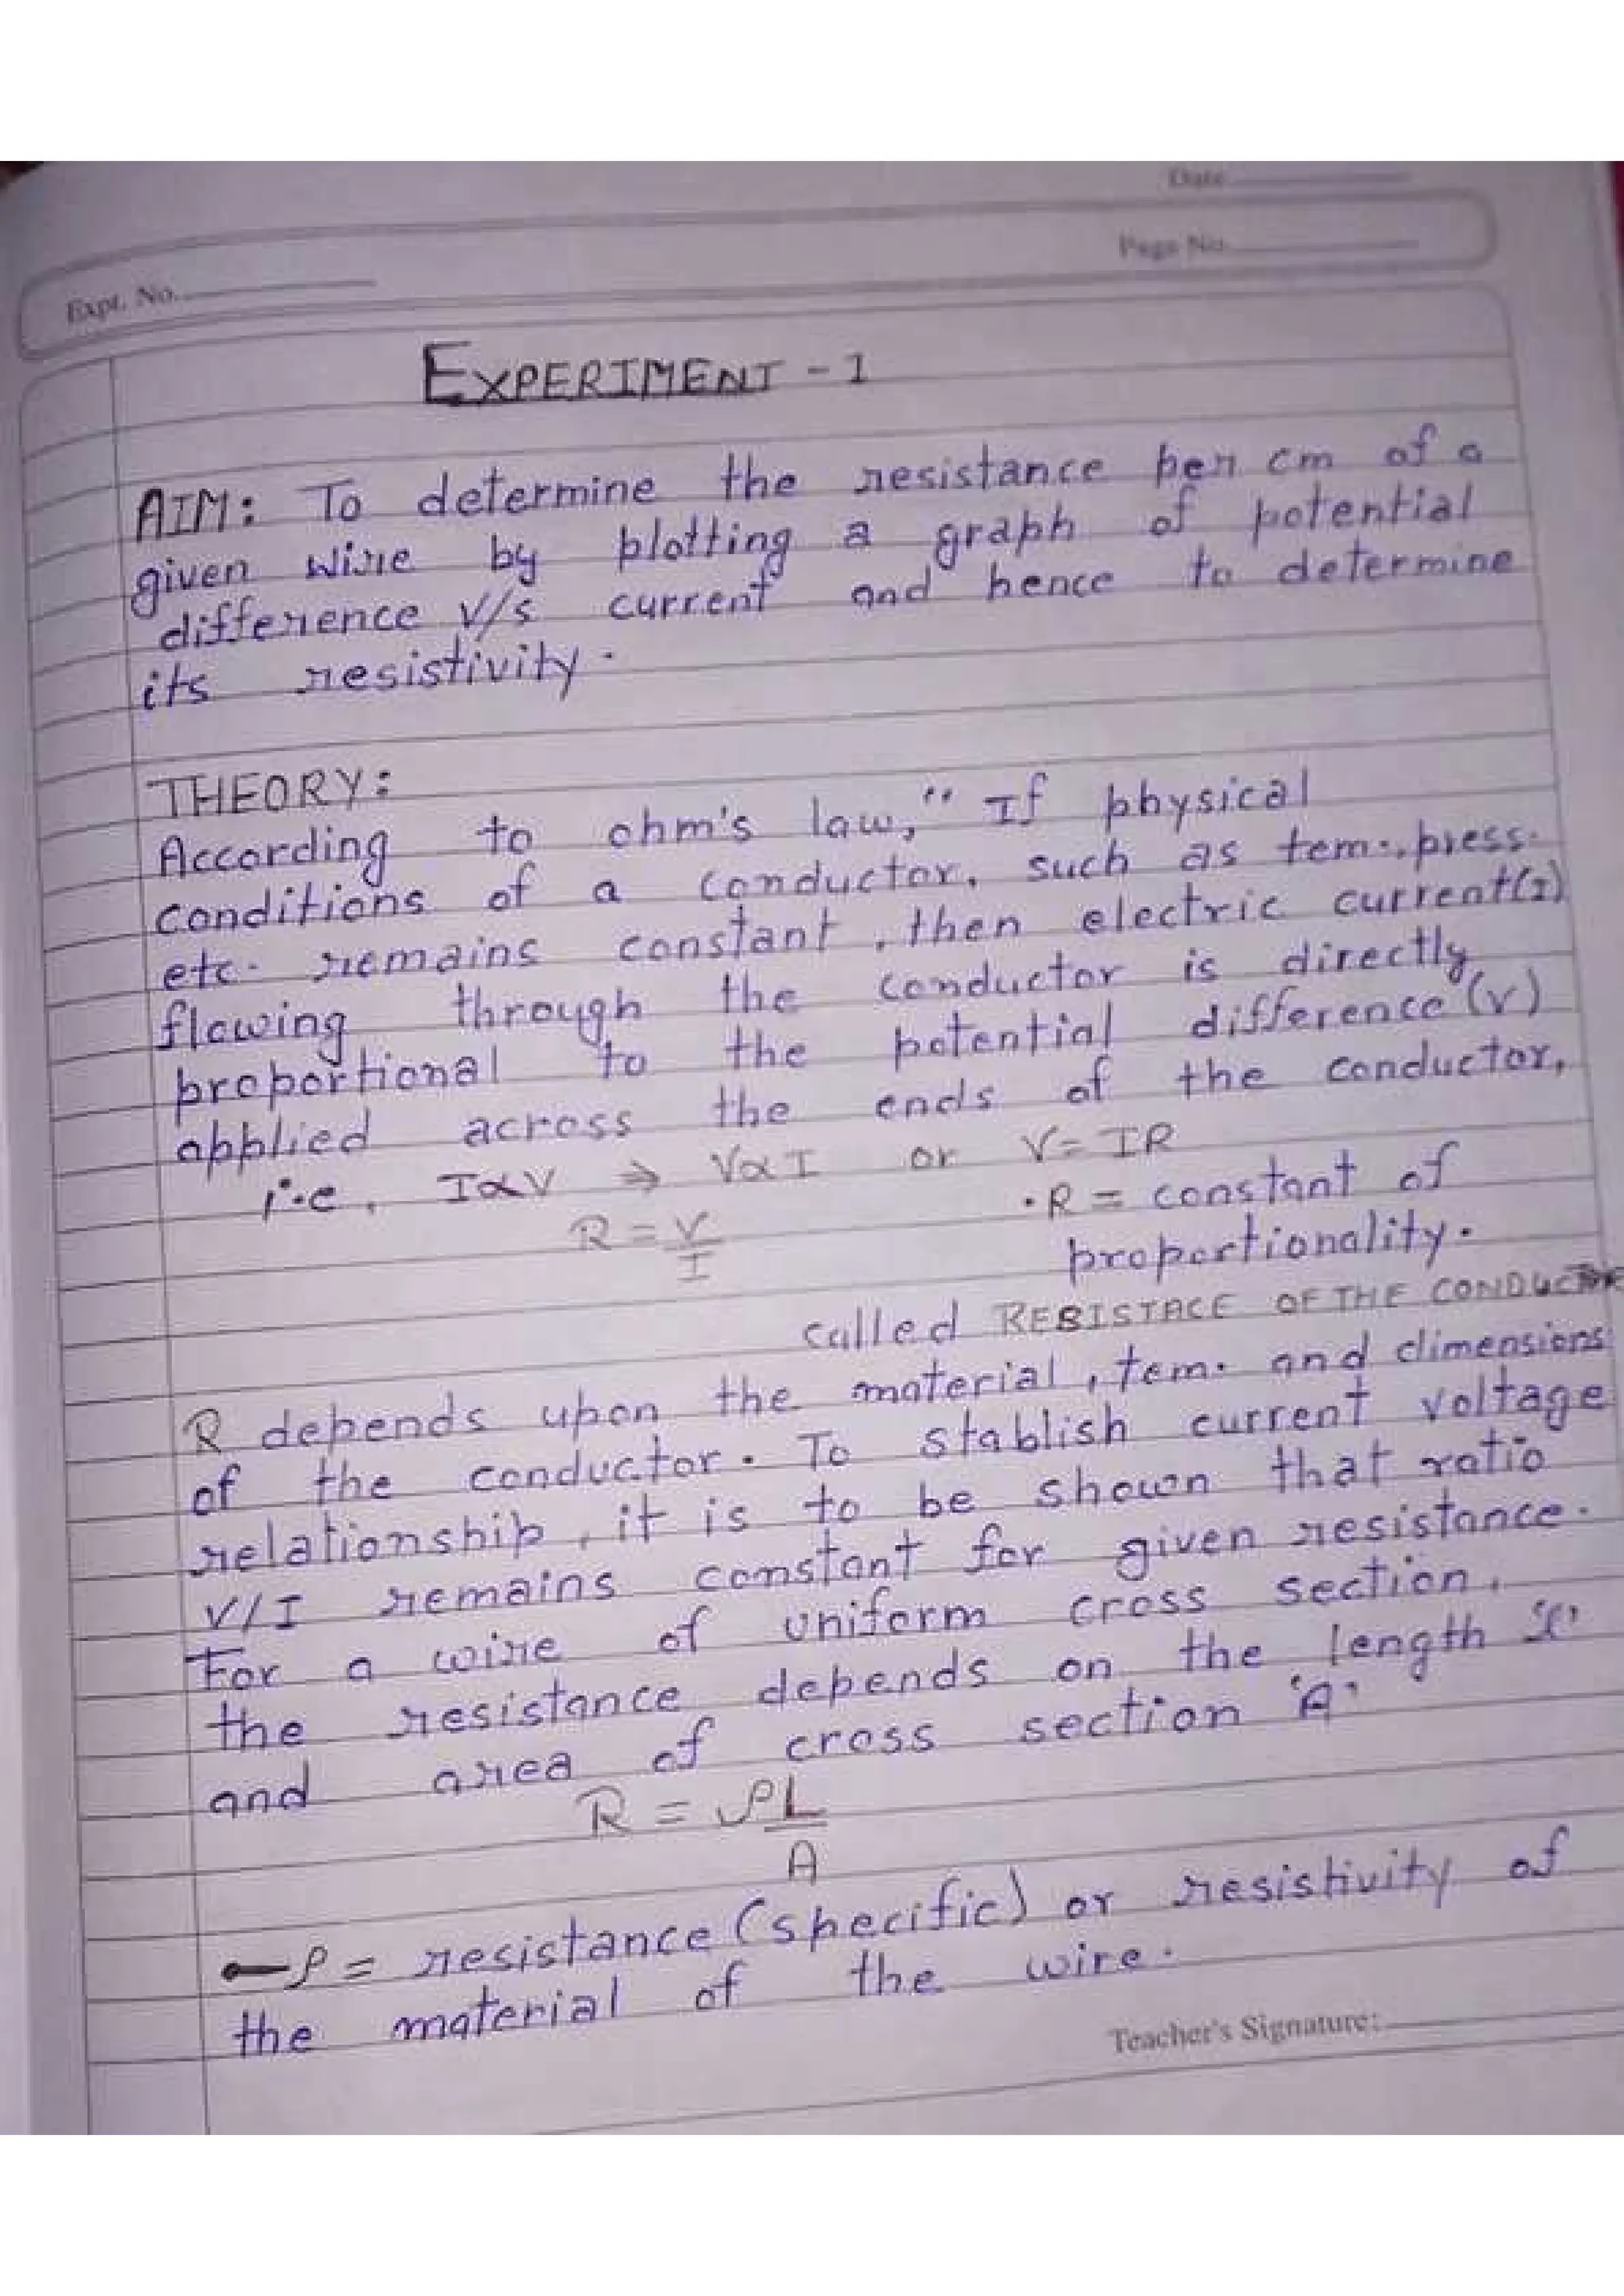 Date
Page No.
Expt. No.
EXPERIMENT - 1
AIM: To determine the resistance per cm of a
given wire by plotting a graph of potential
difference V/s current and hence to determine
its resistivity.
THEORY:
According to ohm's law, " If physical
conditions of a conductor, such as tem., press.
etc. remains constant, then electric current(I)
flowing through the conductor is directly
proportional to the potential difference (V)
applied across the ends of the conductor,
i.e, I∝V ⇒ V∝I or V= IR
R = V/I
• R = constant of
proportionality.
called RESISTACE OF THE CONDUCTOR
R depends upon the material, tem. and dimensions
of the conductor. To stablish current voltage
relationship, it is to be shown that ratio
V/I remains constant for given resistance.
For a wire of uniform cross section,
the resistance depends on the length 'l'
and area of cross section 'A'
R = ρL/A
ρ = resistance (specific) or resistivity of
the material of the wire.
Teacher's Signature: